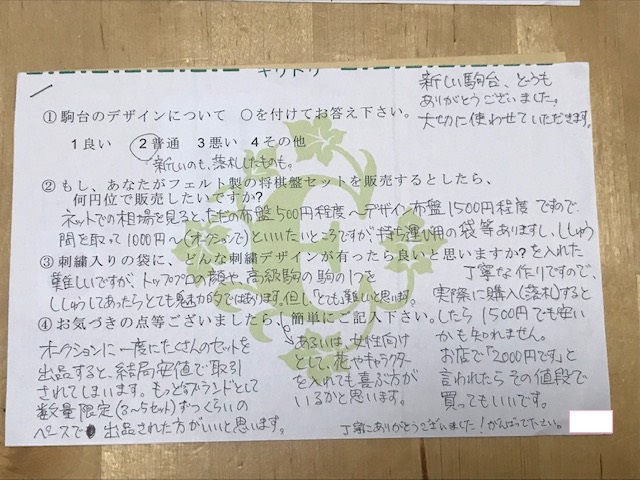 キリトリ
新しい駒台、どうも
ありがとうございました。
大切に使わせていただきます。
①駒台のデザインについて ○を付けてお答え下さい。
1良い 2普通 3悪い 4その他
新しいのも、落札したものも。
②もし、あなたがフェルト製の将棋盤セットを販売するとしたら、
何円位で販売したいですか?
ネットでの相場を見ると、ただの布盤500円程度〜デザイン布盤1500円程度ですので、
間を取って1000円〜(オークションで)といいたいところですが、持ち運び用の袋等ありますし、ししゅう
を入れた
丁寧な作りですので、
実際に購入(落札)すると
したら1500円でも安い
かも知れません。
お店で「2000円です」と
言われたらその値段で
買ってもいいです。
③刺繍入りの袋に、どんな刺繍デザインが有ったら良いと思いますか?
難しいですが、トッププロの顔や、高級駒の駒の1つを
ししゅうしてあったらとても魅力的ではあります。但し、とても難しいと思います。
④お気づきの点等ございましたら、簡単にご記入下さい。
オークションに一度にたくさんのセットを
出品すると、結局安値で取引
されてしまいます。もっとブランドとして
数量限定(3〜5セット)ずつくらいの
ペースで出品された方がいいと思います。
あるいは、女性向け
として、花やキャラクター
を入れても喜ぶ方が
いるかと思います。
丁寧にありがとうございました!がんばって下さい。